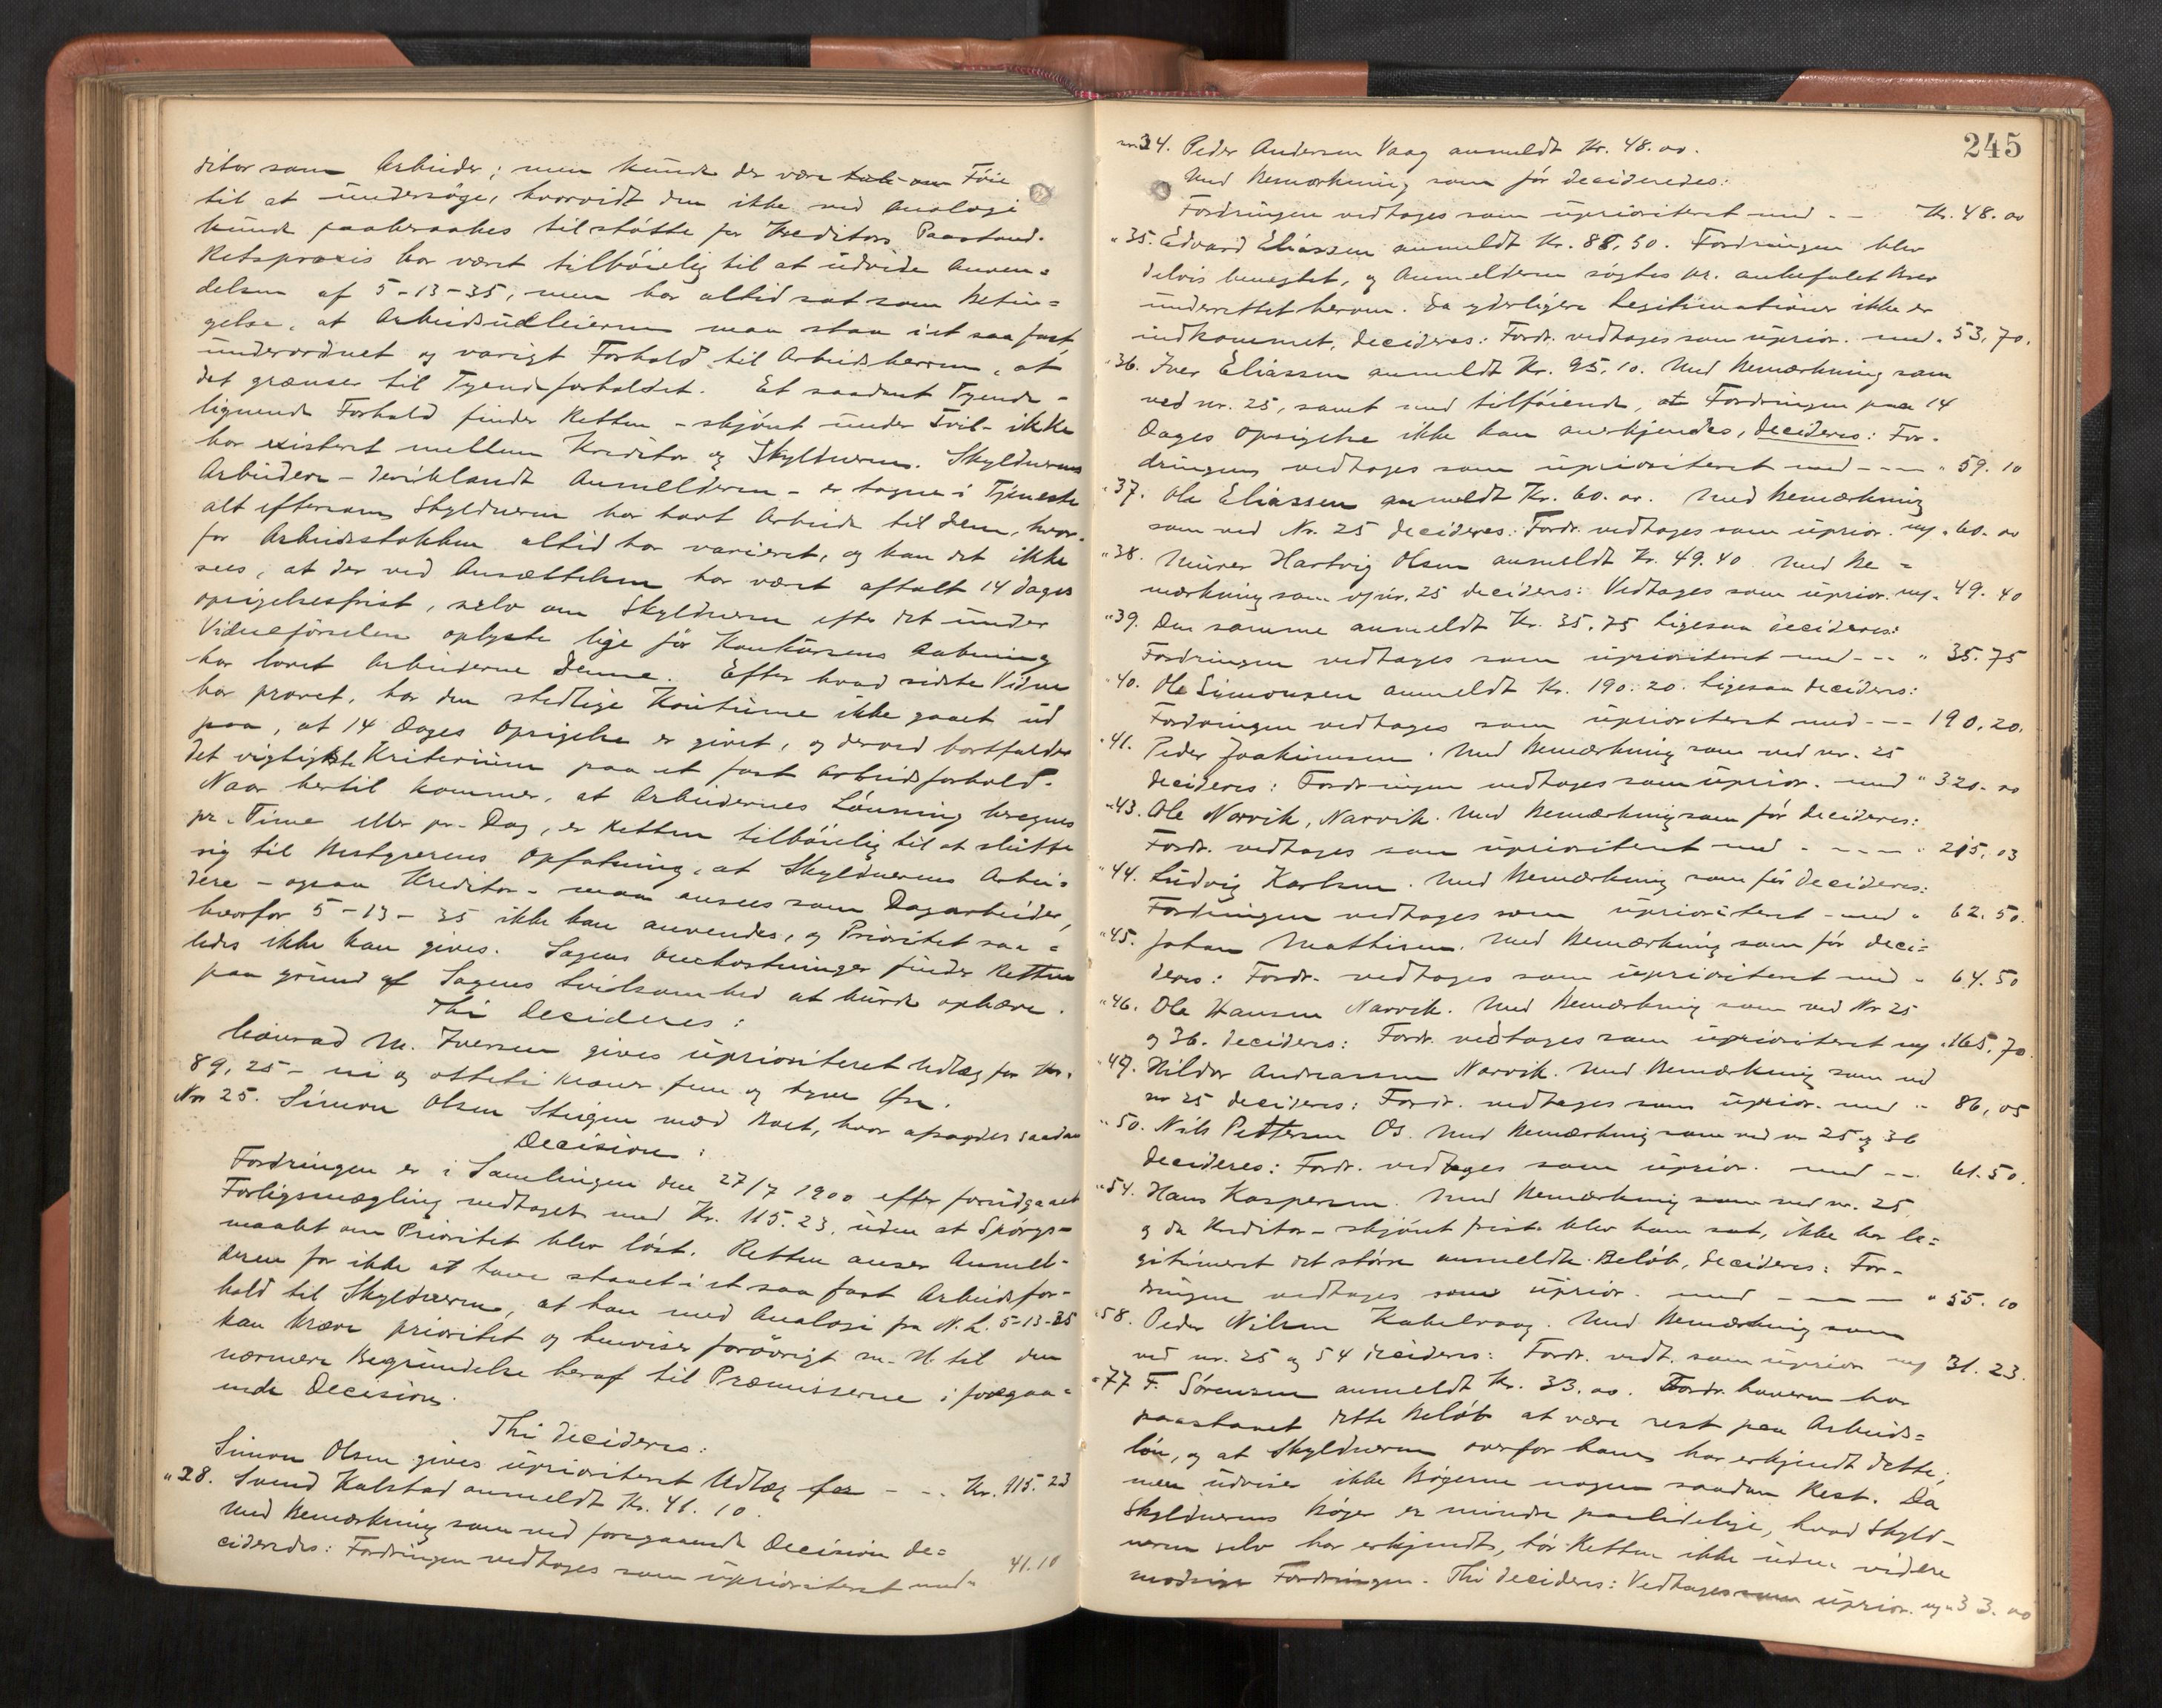 ditor som Arbeider; men kunde der være Föie
til at undersöge, hvorvidt den ikke ved Analogi
kunde paaberaabes til stötte for Kreditors Paastand.
Retspraxis har været tilböielig til at udvide Anven=
delsen af 5-13-35, men har altid sat som Betin=
gelse, at Arbeidsudleieren maa staa i et saa fast,
underordnet og varigt Forhold til Arbeidsherren, at
det grænser til Tyendeforholdet. Et saadant Tyende=
lignende Forhold finder Retten - skjönt under Tvil - ikke
har existeret mellem Kreditor og Skyldneren. Skyldnerens
Arbeidere - deriblandt Anmelderen - er tagne i Tjeneste
alt eftersom Skyldneren har havt Arbeide til dem, hvor-
for Arbeidsstokken altid har varieret, og kan det ikke
sees, at der ved Ansættelsen har været aftalt 14 dages
opsigelsesfrist, selv om Skyldneren efter det under
Vidneförselen oplyste lige för Konkursens Aabning
har lovet Arbeiderne denne. Efter hvad sidste Vidne
har provet, har den stedlige Koutume ikke gaaet ud
paa, at 14 Dages Opsigelse er givet, og derved bortfalder
det vigtigste Kriterium paa et fast Arbeidsforhold.
Naar hertil kommer, at Arbeidernes Lönning beregnes
pr. Time eller pr. Dag, er Retten tilböielig til at slutte
sig til Bestyrerens Opfatning, at Skyldnerens Arbei=
dere - ogsaa Kreditor - maa ansees som Dagarbeider,
hvorfor 5-13-35 ikke kan anvendes, og Prioritet saa=
ledes ikke kan gives. Sagens Omkostninger finder Retten
paa grund af Sagens tvilsomhed at burde ophæve.
Thi decideres:
Conrad M. Iversen gives uprioriteret Udlæg for Kr.
89,25 - ni og otteti kroner fem og tyve Öre.
No 25. Simon Olsen Steigen mod Boet, hvor afsagdes saadan
Decision:
Fordringen er i Samlingen den 27/7 1900 efter forudgaaet
Forligsmægling vedtaget med Kr. 115.23, uden at Spörgs=
maalet om Prioritet blev löst. Retten anser Anmel-
deren for ikke at have staaet i et saa fast Arbeidsfor-
hold til Skyldneren, at han med Analogi fra N.L. 5-13-35
kan kræve prioritet og henviser forövrigt m. H. til den
nærmere Begrundelse heraf til Præmisserne i foregaa=
ende Decision.
Thi decideres:
Simon Olsen gives uprioriteret Udlæg for - - - Kr. 115.23
"28. Svend Kalstad anmeldt Kr. 41.10.
Med Bemærkning som ved foregaaende Decision de=
cideredes: Fordringen vedtages som uprioriteret med " 41.10
245
nr. 34. Peder Andersen Vaag anmeldt Kr. 48.00.
Med Bemærkning som för decideredes:
Fordringen vedtages som uprioriteret med - - Kr. 48.00
"35. Edvard Eliassen anmeldt Kr. 88,50. Fordringen blev
delvis benegtet, og Anmelderen sögtes pr. anbefalet Brev
underrettet herom. Da yderligere Legitimationer ikke er
indkommet, decideres: Fordr. vedtages som uprior. med " 53,70.
"36. Iver Eliassen anmeldt Kr. 95.10. Med Bemærkning som
ved nr. 25, samt med tilföiende, at Fordringen paa 14
Dages Opsigelse ikke kan anerkjendes, decideres: For-
dringens vedtages som uprioriteret med - - - " 59.10
"37. Ole Eliassen anmeldt Kr. 60.00. Med Bemærkning
som ved Nr. 25 decideres: Fordr. vedtages som uprior. m/ " 60.00
"38. Murer Hartvig Olsen anmeldt Kr. 49.40. Med Be=
mærkning som v/nr. 25 decideres: Vedtages som uprior. m/ " 49.40
"39. Den samme anmeldt Kr. 35.75 ligesaa decideres:
Fordringen vedtages som uprioriteret med - - - " 35.75
"40. Ole Simonsen anmeldt Kr. 190.20. ligesaa decideres:
Fordringen vedtages som uprioriteret med - - - 190.20.
"41. Peder Joakimsen. Med Bemærkning som ved nr. 25
decideres: Fordringen vedtages som uprior. med " 320.00
"43. Ole Norvik, Narvik. Med Bemærkning som för decideres:
Fordr. vedtages som uprioriteret med - - - - " 215.03
"44. Ludvig Karlsen. Med Bemærkning som för decideres:
Fordringen vedtages som uprioriteret - med " 62.50.
"45. Johan Mathisen. Med Bemærkning som för deci=
deres: Fordr. vedtages som uprioriteret med " 64.50
"46. Ole Hansen Narvik. Med Bemærkning som ved Nr 25
og 36. decideres: Fordr. vedtages som uprioriteret m/ " 165,70.
"49. Hildor Andreassen Narvik. Med Bemærkning som ved
nr 25 decideres: Fordr. vedtages som uprior. med - " 86,05
"50. Nils Pettersen Os. Med Bemærkning som ved nr 25 og 36
decideres: Fordr. vedtages som uprior. med - - 61.50.
"54. Hans Kaspersen. Med Bemærkning som ved nr. 25.
og da Kreditor - skjönt frist blev ham sat, ikke har le=
gitimeret det större anmeldte Belöb, decideres: For-
dringen vedtages som uprior. med - - - - " 55.10
"58. Peder Nilsen Kabelvaag. Med Bemærkning som
ved nr. 25 og 54 decideres: Fordr. vedt. som uprior m/ 31.23.
"77 F. Sörensen anmeldt Kr. 33.00. Fordr. haveren har
paastaaet dette Belöb at være rest paa Arbeids=
lön, og at Skyldneren overfor ham har erkjendt dette;
men udviser ikke Bögerne nogen saadan Rest. Da
Skyldnerens Böger er mindre paalidelige, hvad Skyld-
neren selv har erkjendt, tör Retten ikke uden videre
modsige Fordringen. Thi decideres: Vedtages som uprior. m/ " 33.00